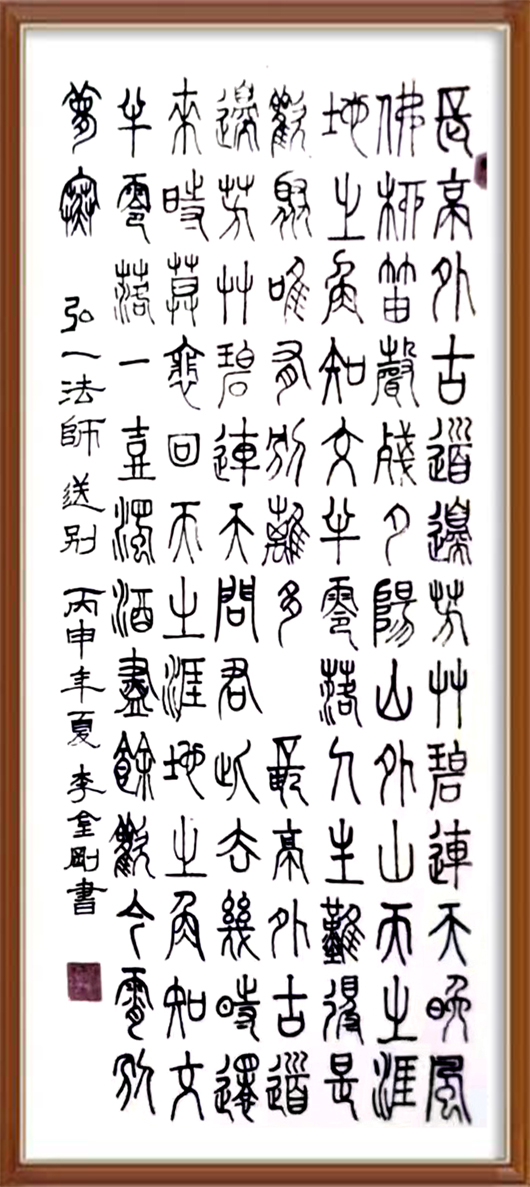 長亭外古道邊芳艸碧連天晚風
佛柳笛聲殘夕陽山外山天之涯
地之角知交半零落人生難得是
歡聚唯有別離多 長亭外古道
邊芳艸碧連天問君此去幾時還
來時莫裴回天之涯地之角知交
半零落一壺濁酒盡餘歡今宵別
夢寒 弘一法師 送别 丙申年夏 李金剛書